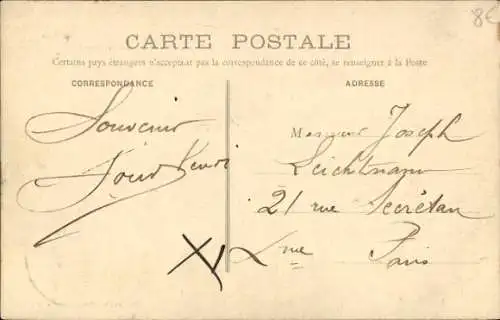 8€
CARTE POSTALE
Certains pays étrangers n'acceptant pas la correspondance de ce côté, se renseigner à la Poste
CORRESPONDANCE
ADRESSE
Souvenir
Monsieur Joseph
Leichtmann
21 rue Secrétan
Paris